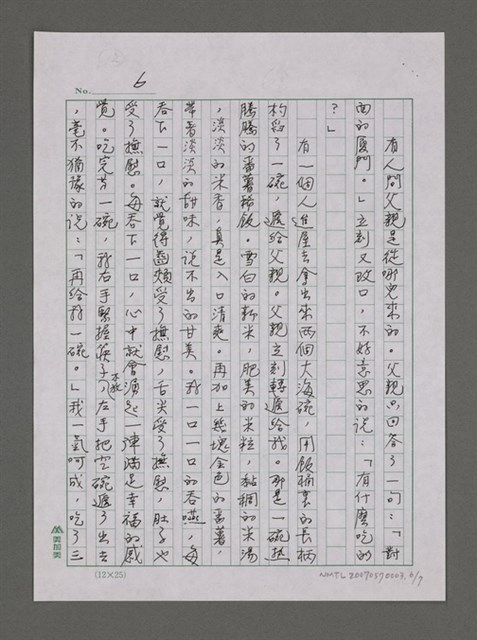 No. 6
有人問父親是從哪兒來的。父親只回答了一句：「對
面的廈門。」立刻又改口，不好意思的說：「有什麼吃的
？」
有一個人進屋去拿出來兩個大海碗，用飯桶裏的長柄
杓舀了一碗，遞給父親。父親立刻轉遞給我。那是一碗熱
騰騰的番薯稀飯。雪白的新米，肥美的米粒，黏稠的米湯
，淡淡的米香，真是入口清爽。再加上幾塊金色的番薯，
帶着淡淡的甜味，說不出的甘美。我一口一口的吞嚥，每
吞下一口，就覺得齒頰受了撫慰，舌尖受了撫慰，肚子也
受了撫慰。每吞下一口，心中就會湧起一陣滿足幸福的感
覺。吃完第一碗，我右手緊握筷子不放，左手把空碗遞了出去
，毫不猶豫的說：「再給我一碗。」我一氣呵成，吃了三
美加美
(12×25)
NMTL 20070570003. 6/7